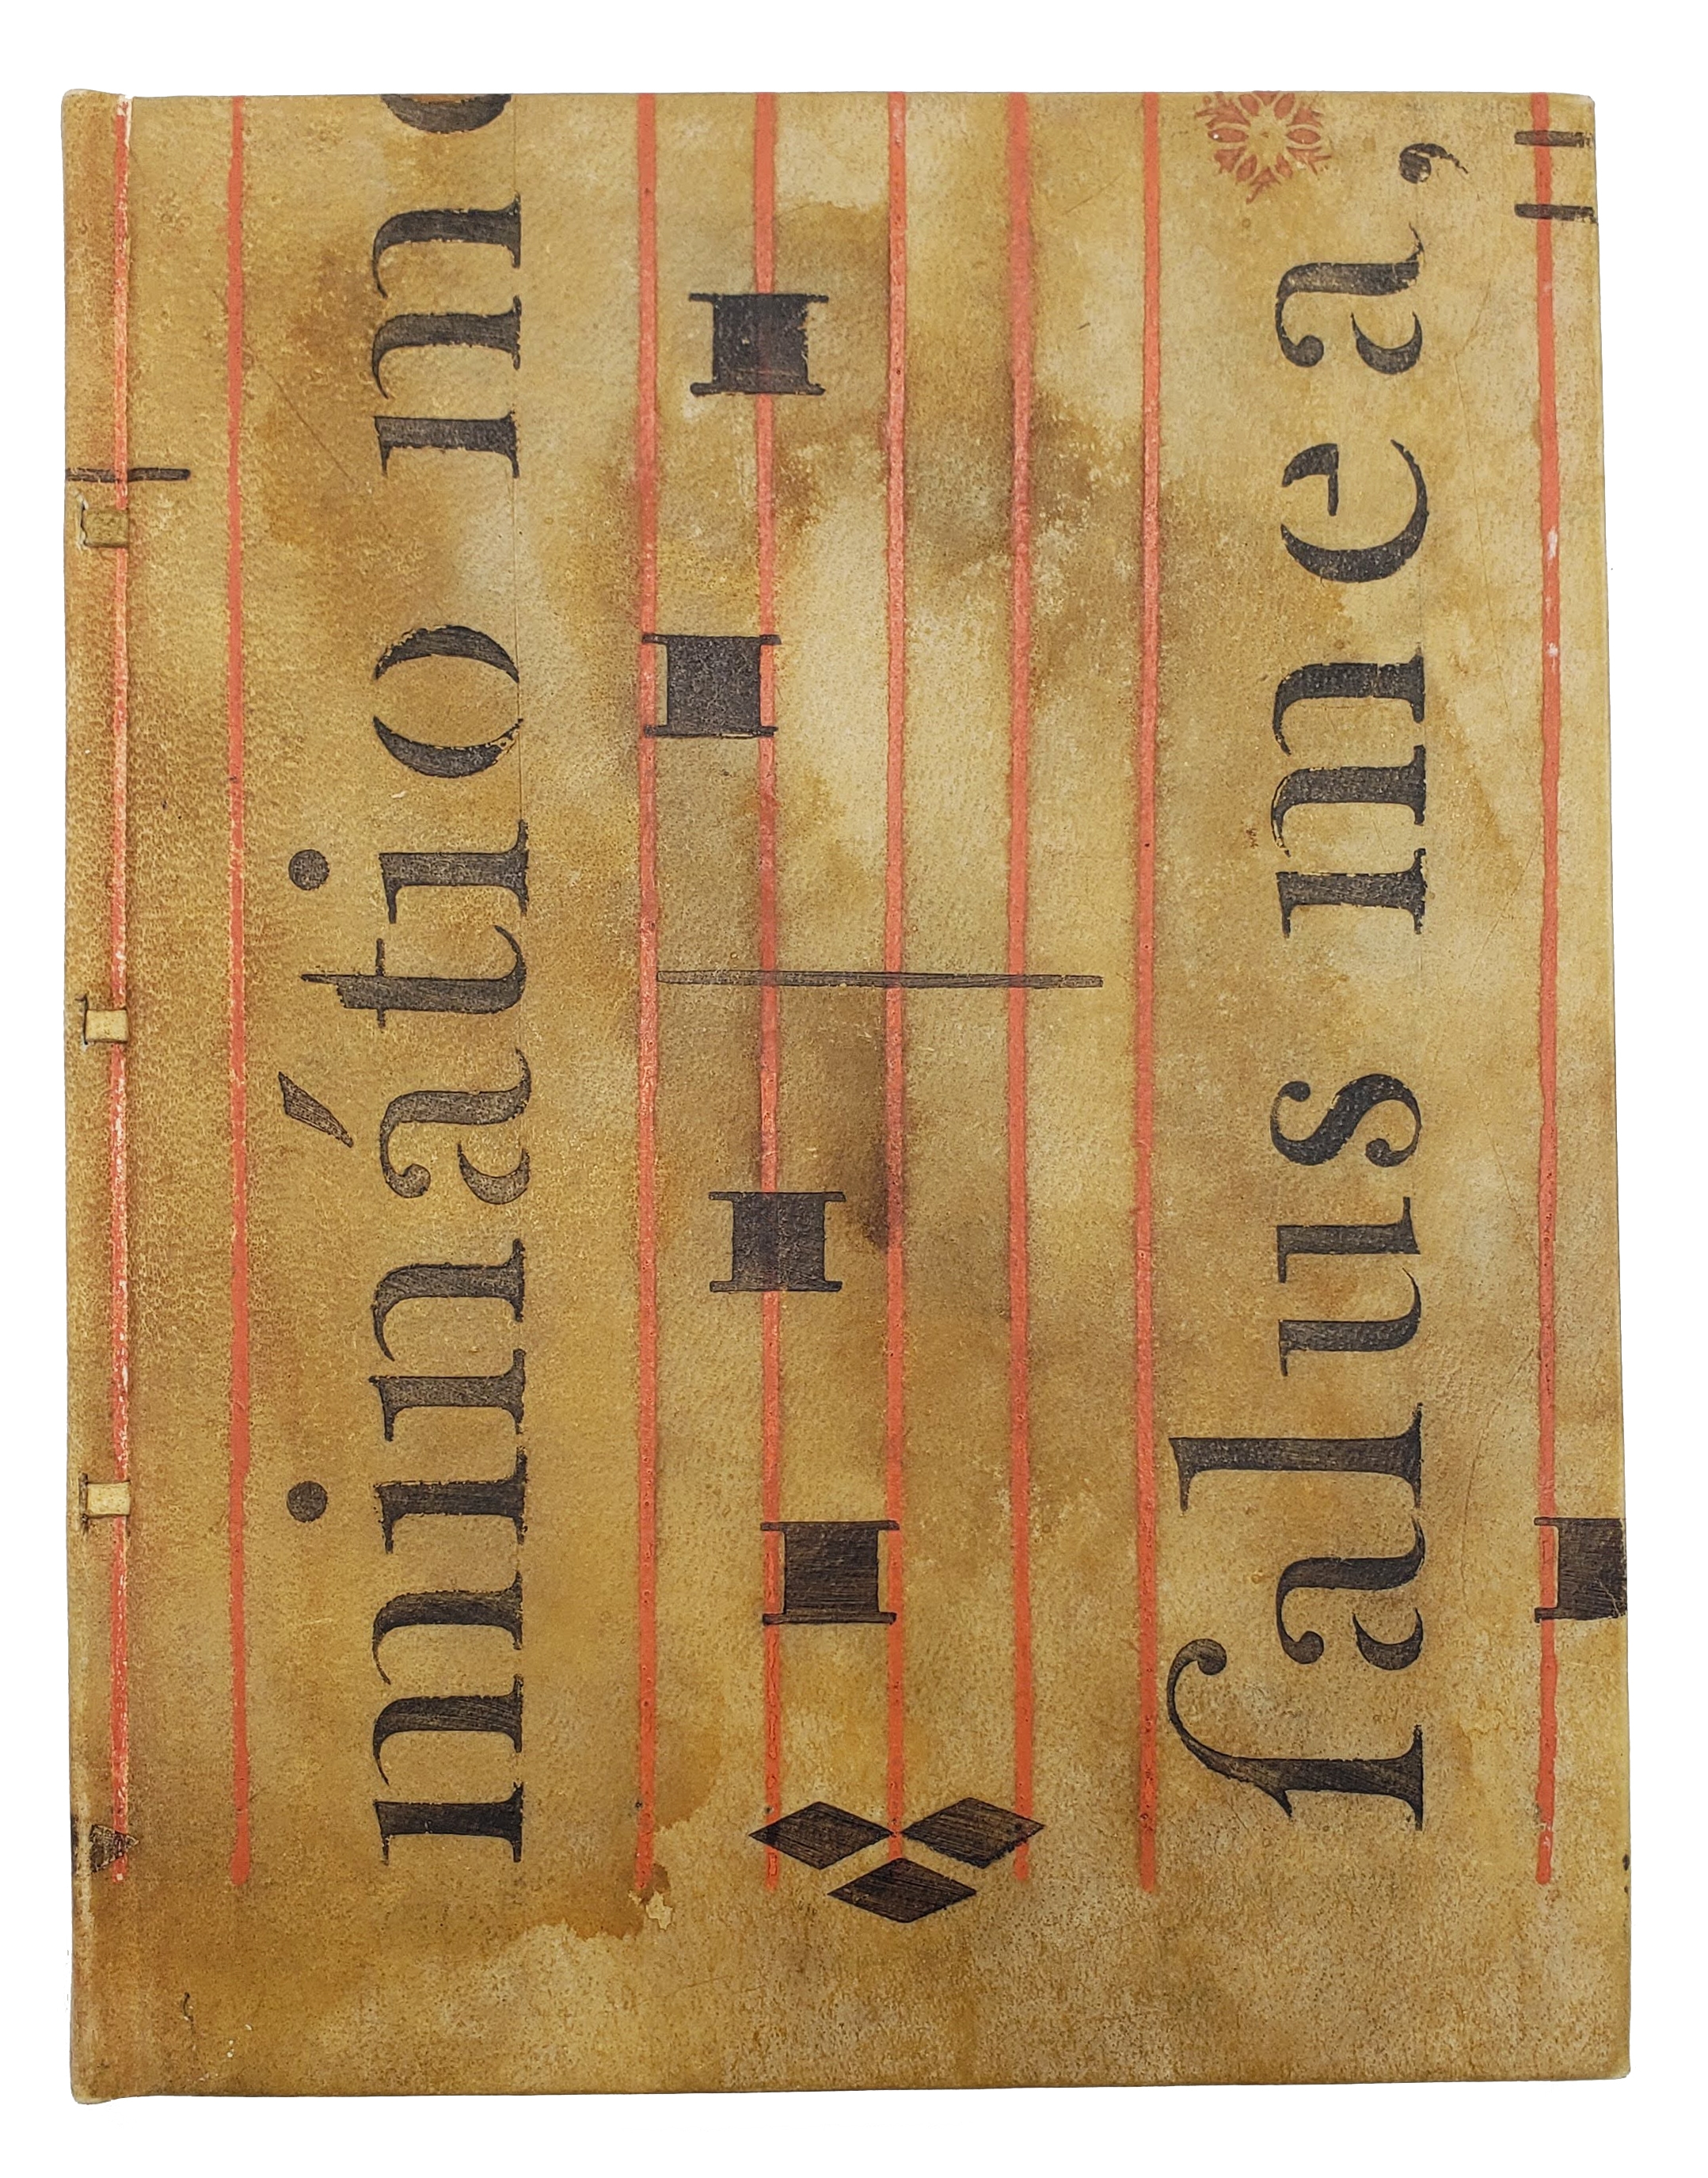 minátio me
ſalus mea,